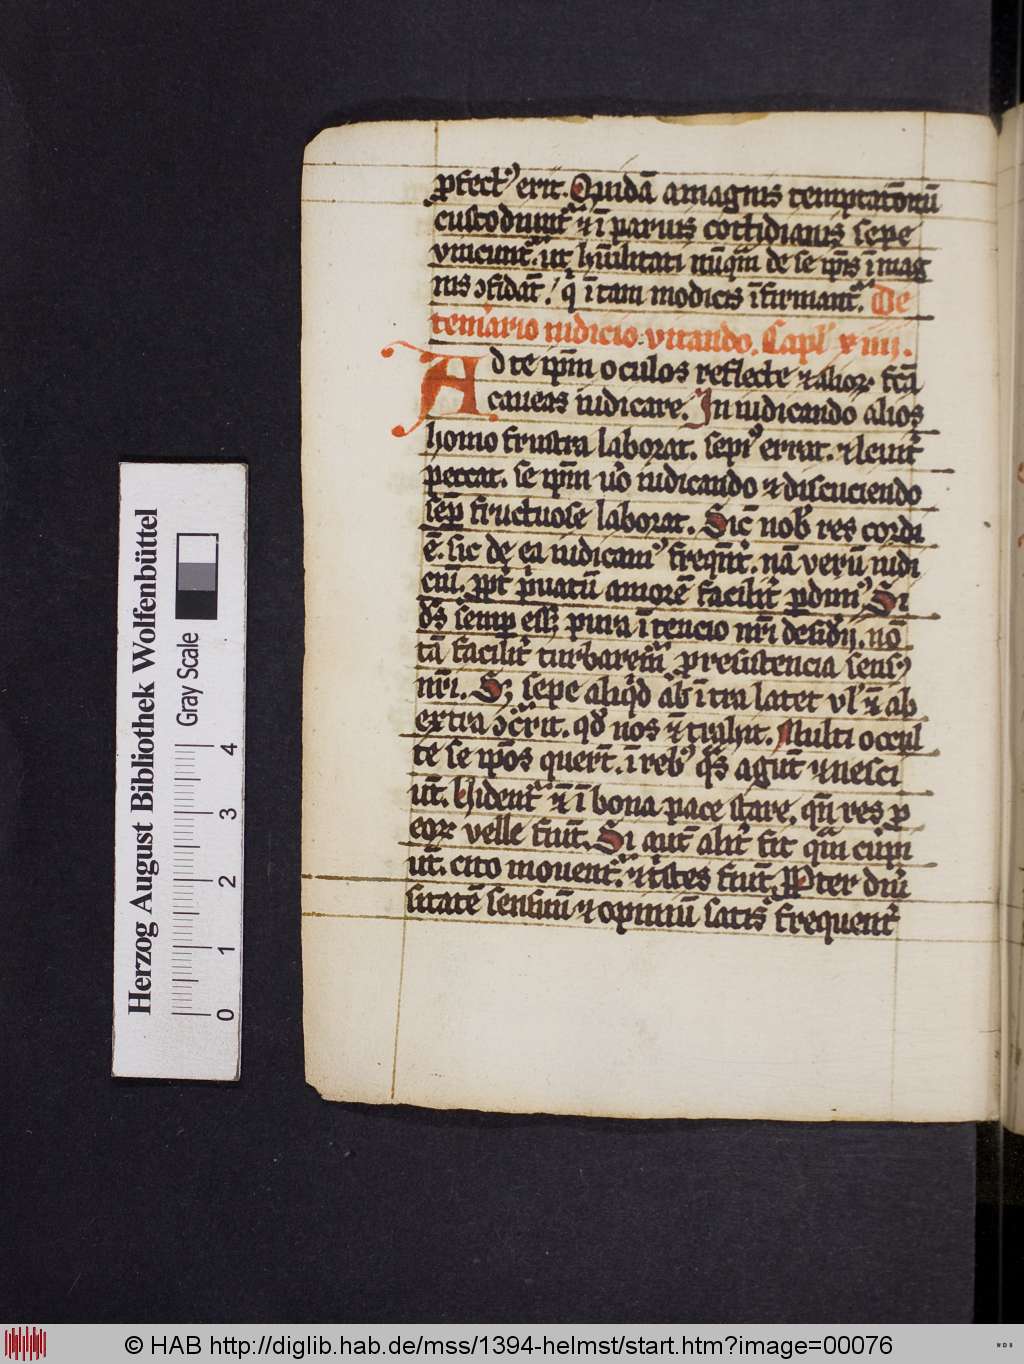 ꝓfect⁹ erit. Quidā a magnis temptatōnū
custodiunt᷑ ⁊ ī paruis cottidianis sepe
vincunt᷑. ut hūilitati nūqm̄ de se ip̄is ī mag
nis ꝯfidāt / q ī tam modicis īfirmant᷑. De
temerario iudicio vitando. Capl' xiiij.
Ad te ip̄m oculos reflecte ⁊ alioꝝ fcā
caueas iudicare. In iudicando alios
homo frustra laborat. sepi⁹ errat. ⁊ leuit᷑
peccat. se ip̄m uo iudicando ⁊ discuciendo
sep̄ fructuose laborat. Sic nob res cordi
ē. sic de ea iudicam⁹ freqn̄t᷑. nā verū iudi
ciū. ꝓpt᷑ p̄uatū amorē facilit᷑ ꝑdim⁹ Si
ds̄ semꝑ eēꝫ pura ītencio nr̄i desid'ij. nō
tā facilit᷑ turbarem᷑ ꝓ resistencia sens⁹
nr̄i. Sꝫ sepe aliqd ab ītra latet vl' ē ab
extra ꝯcr̄it. qd' nos ē trahit. Multi occul
te se ip̄os quer̄t. ī reb⁹ qs agūt ⁊ nesci
ūt. Vident᷑ ē ī bona pace stare, qn̄ res ꝓ
eoꝝ velle fiūt. Si aūt alit᷑ fit qm̄ cupi
ūt. cito mouent᷑. ⁊ t'stes fiūt. Propter diu'
sitatē sensuū ⁊ opiniū satis frequent᷑
Herzog August Bibliothek Wolfenbüttel
Gray Scale
0 1 2 3 4
© HAB http://diglib.hab.de/mss/1394-helmst/start.htm?image=00076